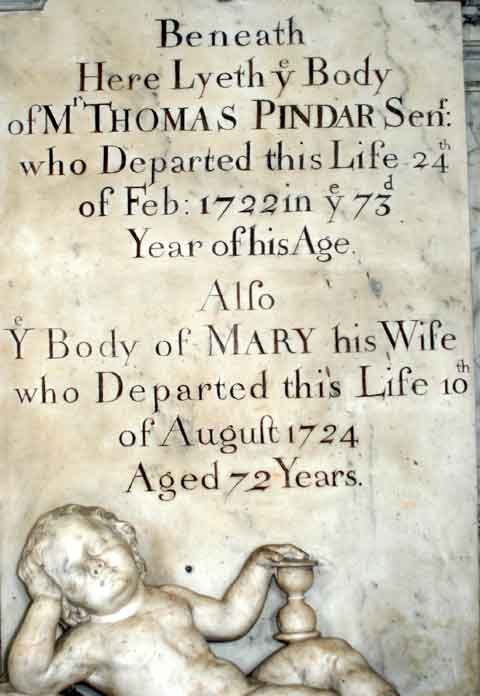 Beneath
Here Lyeth yͤ Body
of Mʳ THOMAS PINDAR Senʳ:
who Departed this Life 24ᵗʰ
of Feb: 1722 in yͤ 73ᵈ
Year of his Age.
Alſo
Yͤ Body of MARY his Wife
who Departed this Life 10ᵗʰ
of Auguſt 1724
Aged 72 Years.